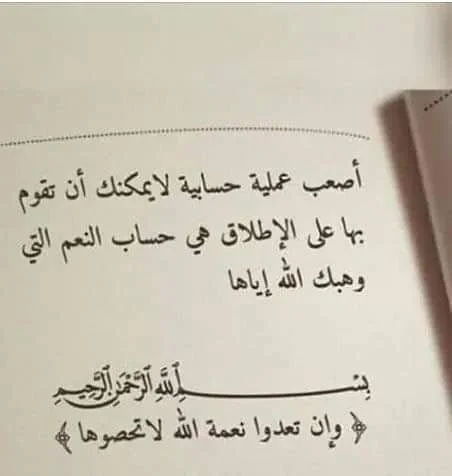 أصعب عملية حسابية لايمكنك أن تقوم
بها على الإطلاق هي حساب النعم التي
وهبك الله إياها
بسم الله الرحمن الرحيم
﴿ وإن تعدوا نعمة الله لاتحصوها ﴾